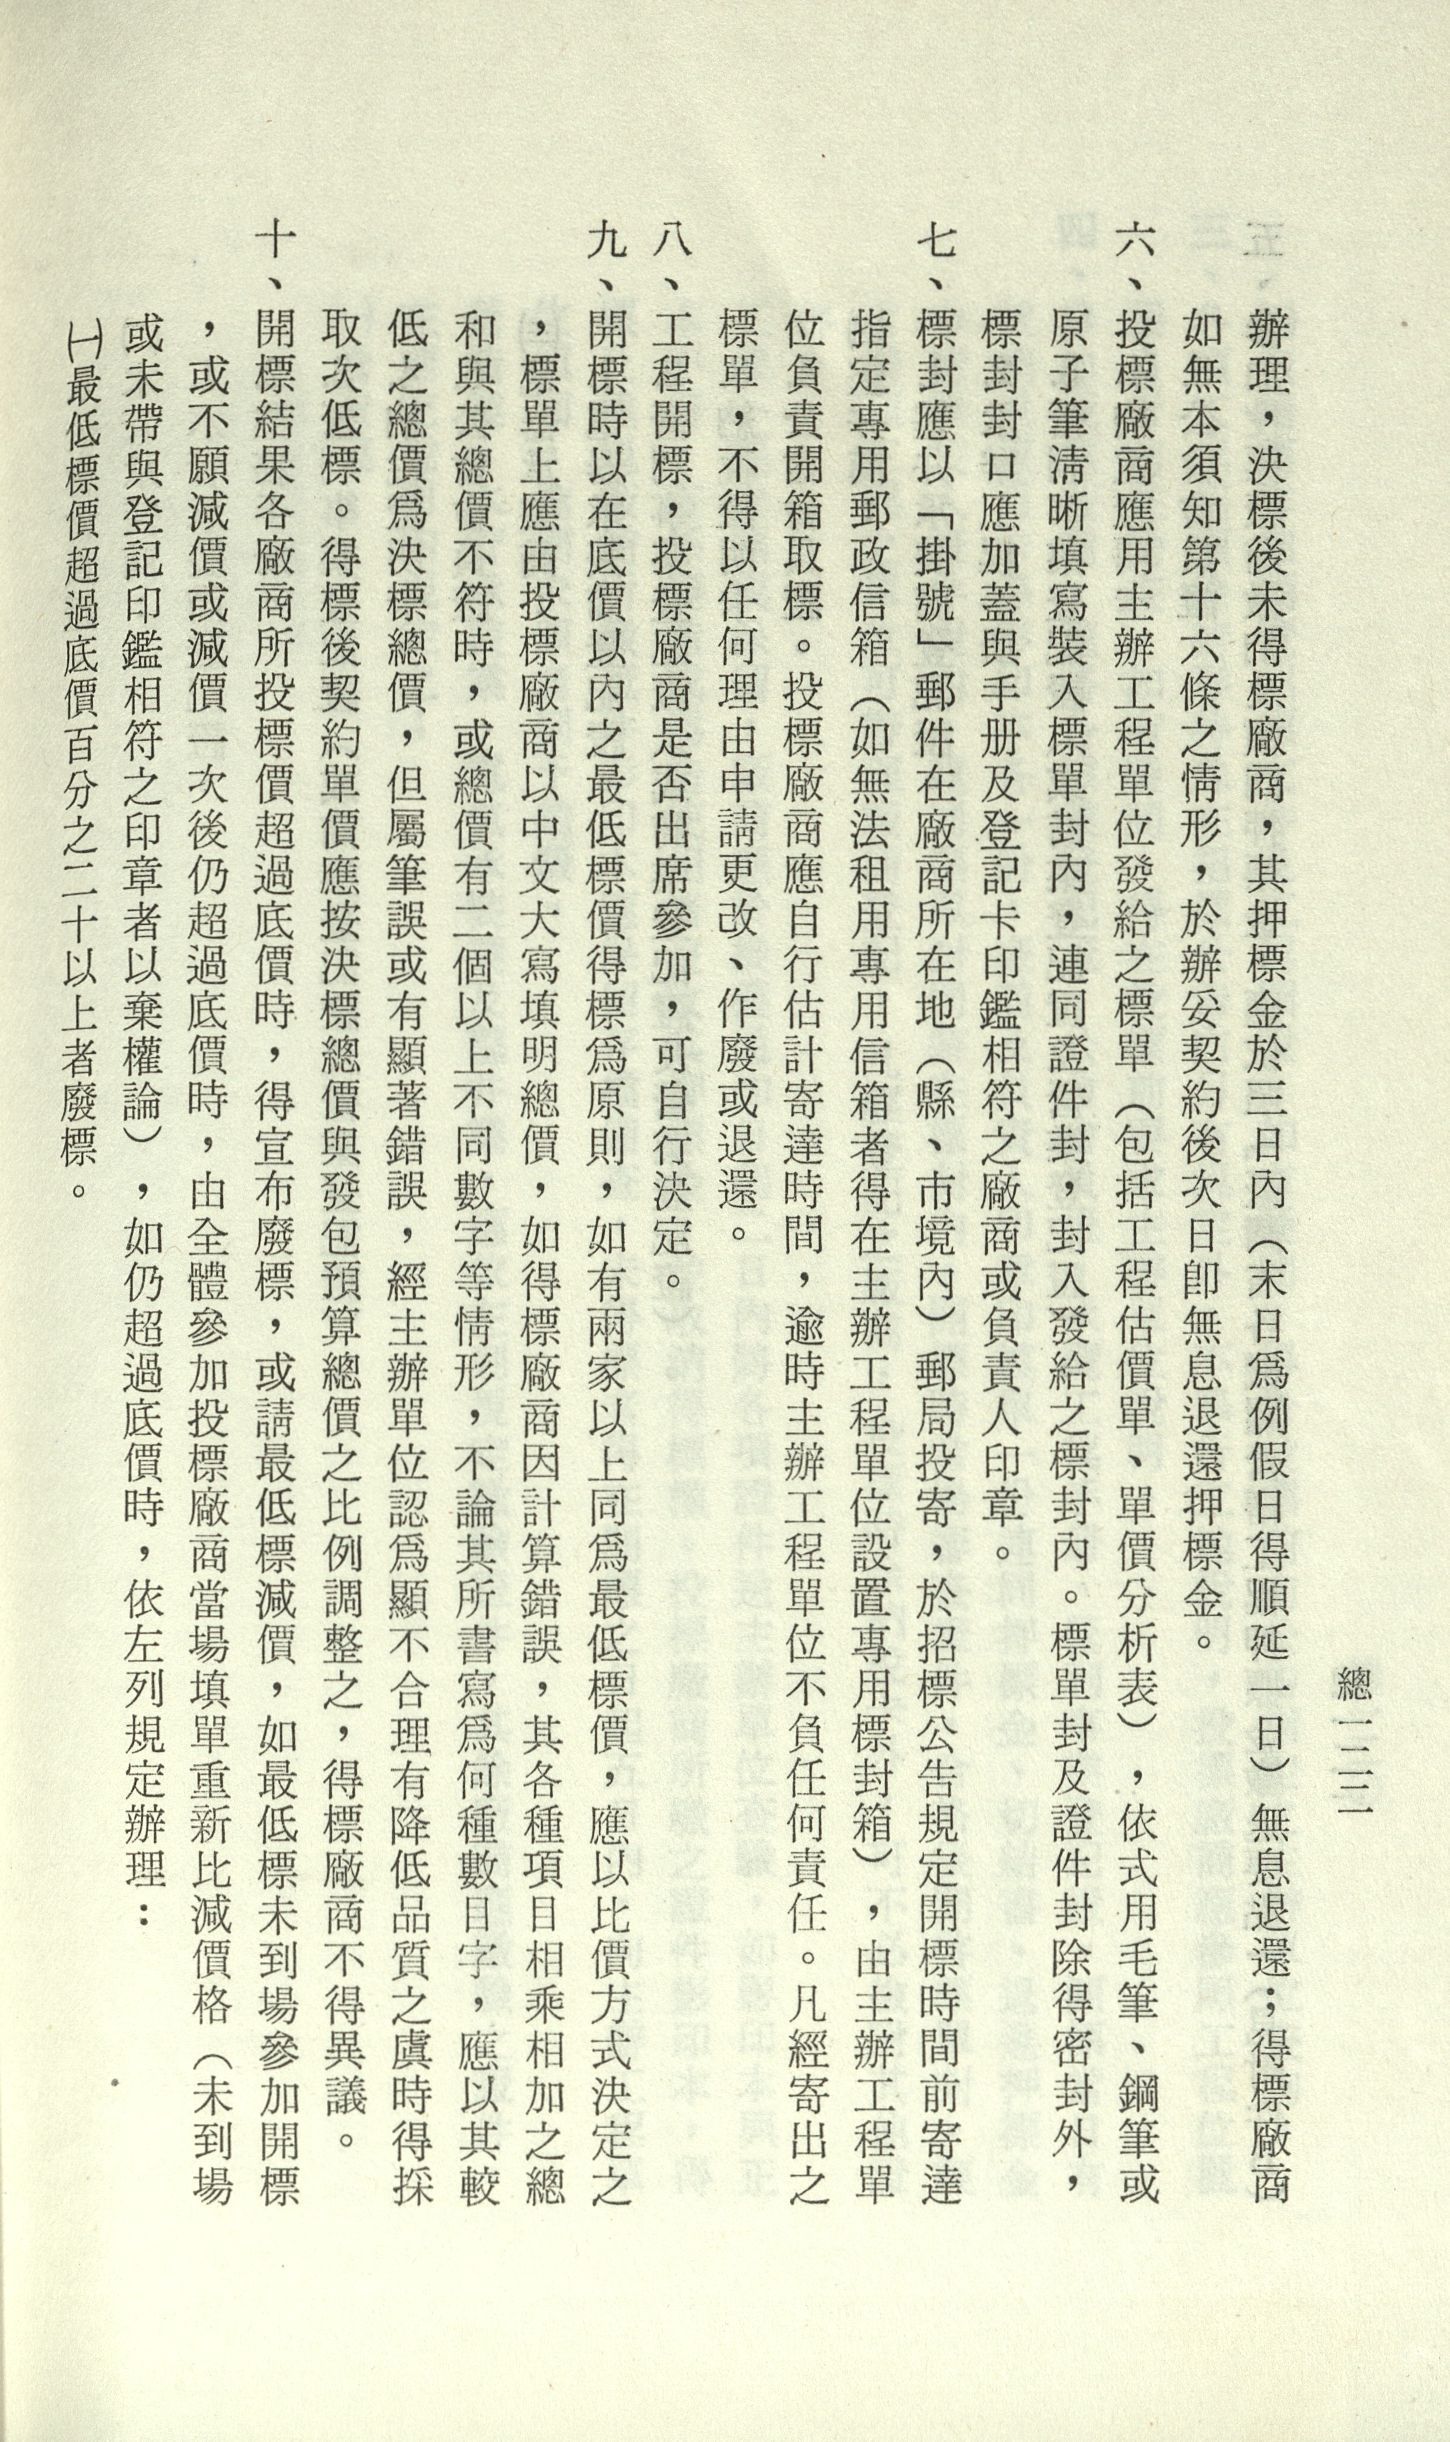 總一二二
辦理，決標後未得標廠商，其押標金於三日內（末日爲例假日得順延一日）無息退還；得標廠商
如無本須知第十六條之情形，於辦妥契約後次日卽無息退還押標金。
六、投標廠商應用主辦工程單位發給之標單（包括工程估價單、單價分析表），依式用毛筆、鋼筆或
原子筆淸晰填寫裝入標單封內，連同證件封，封入發給之標封內。標單封及證件封除得密封外，
標封封口應加蓋與手册及登記卡印鑑相符之廠商或負責人印章。
七、標封應以「掛號」郵件在廠商所在地（縣、市境內）郵局投寄，於招標公告規定開標時間前寄達
指定專用郵政信箱（如無法租用專用信箱者得在主辦工程單位設置專用標封箱），由主辦工程單
位負責開箱取標。投標廠商應自行估計寄達時間，逾時主辦工程單位不負任何責任。凡經寄出之
標單，不得以任何理由申請更改、作廢或退還。
八、工程開標，投標廠商是否出席參加，可自行決定。
九、開標時以在底價以內之最低標價得標爲原則，如有兩家以上同爲最低標價，應以比價方式決定之
，標單上應由投標廠商以中文大寫填明總價，如得標廠商因計算錯誤，其各種項目相乘相加之總
和與其總價不符時，或總價有二個以上不同數字等情形，不論其所書寫爲何種數目字，應以其較
低之總價爲決標總價，但屬筆誤或有顯著錯誤，經主辦單位認爲顯不合理有降低品質之虞時得採
取次低標。得標後契約單價應按決標總價與發包預算總價之比例調整之，得標廠商不得異議。
十、開標結果各廠商所投標價超過底價時，得宣布廢標，或請最低標減價，如最低標未到場參加開標
，或不願減價或減價一次後仍超過底價時，由全體參加投標廠商當場填單重新比減價格（未到場
或未帶與登記印鑑相符之印章者以棄權論），如仍超過底價時，依左列規定辦理：
㈠最低標價超過底價百分之二十以上者廢標。